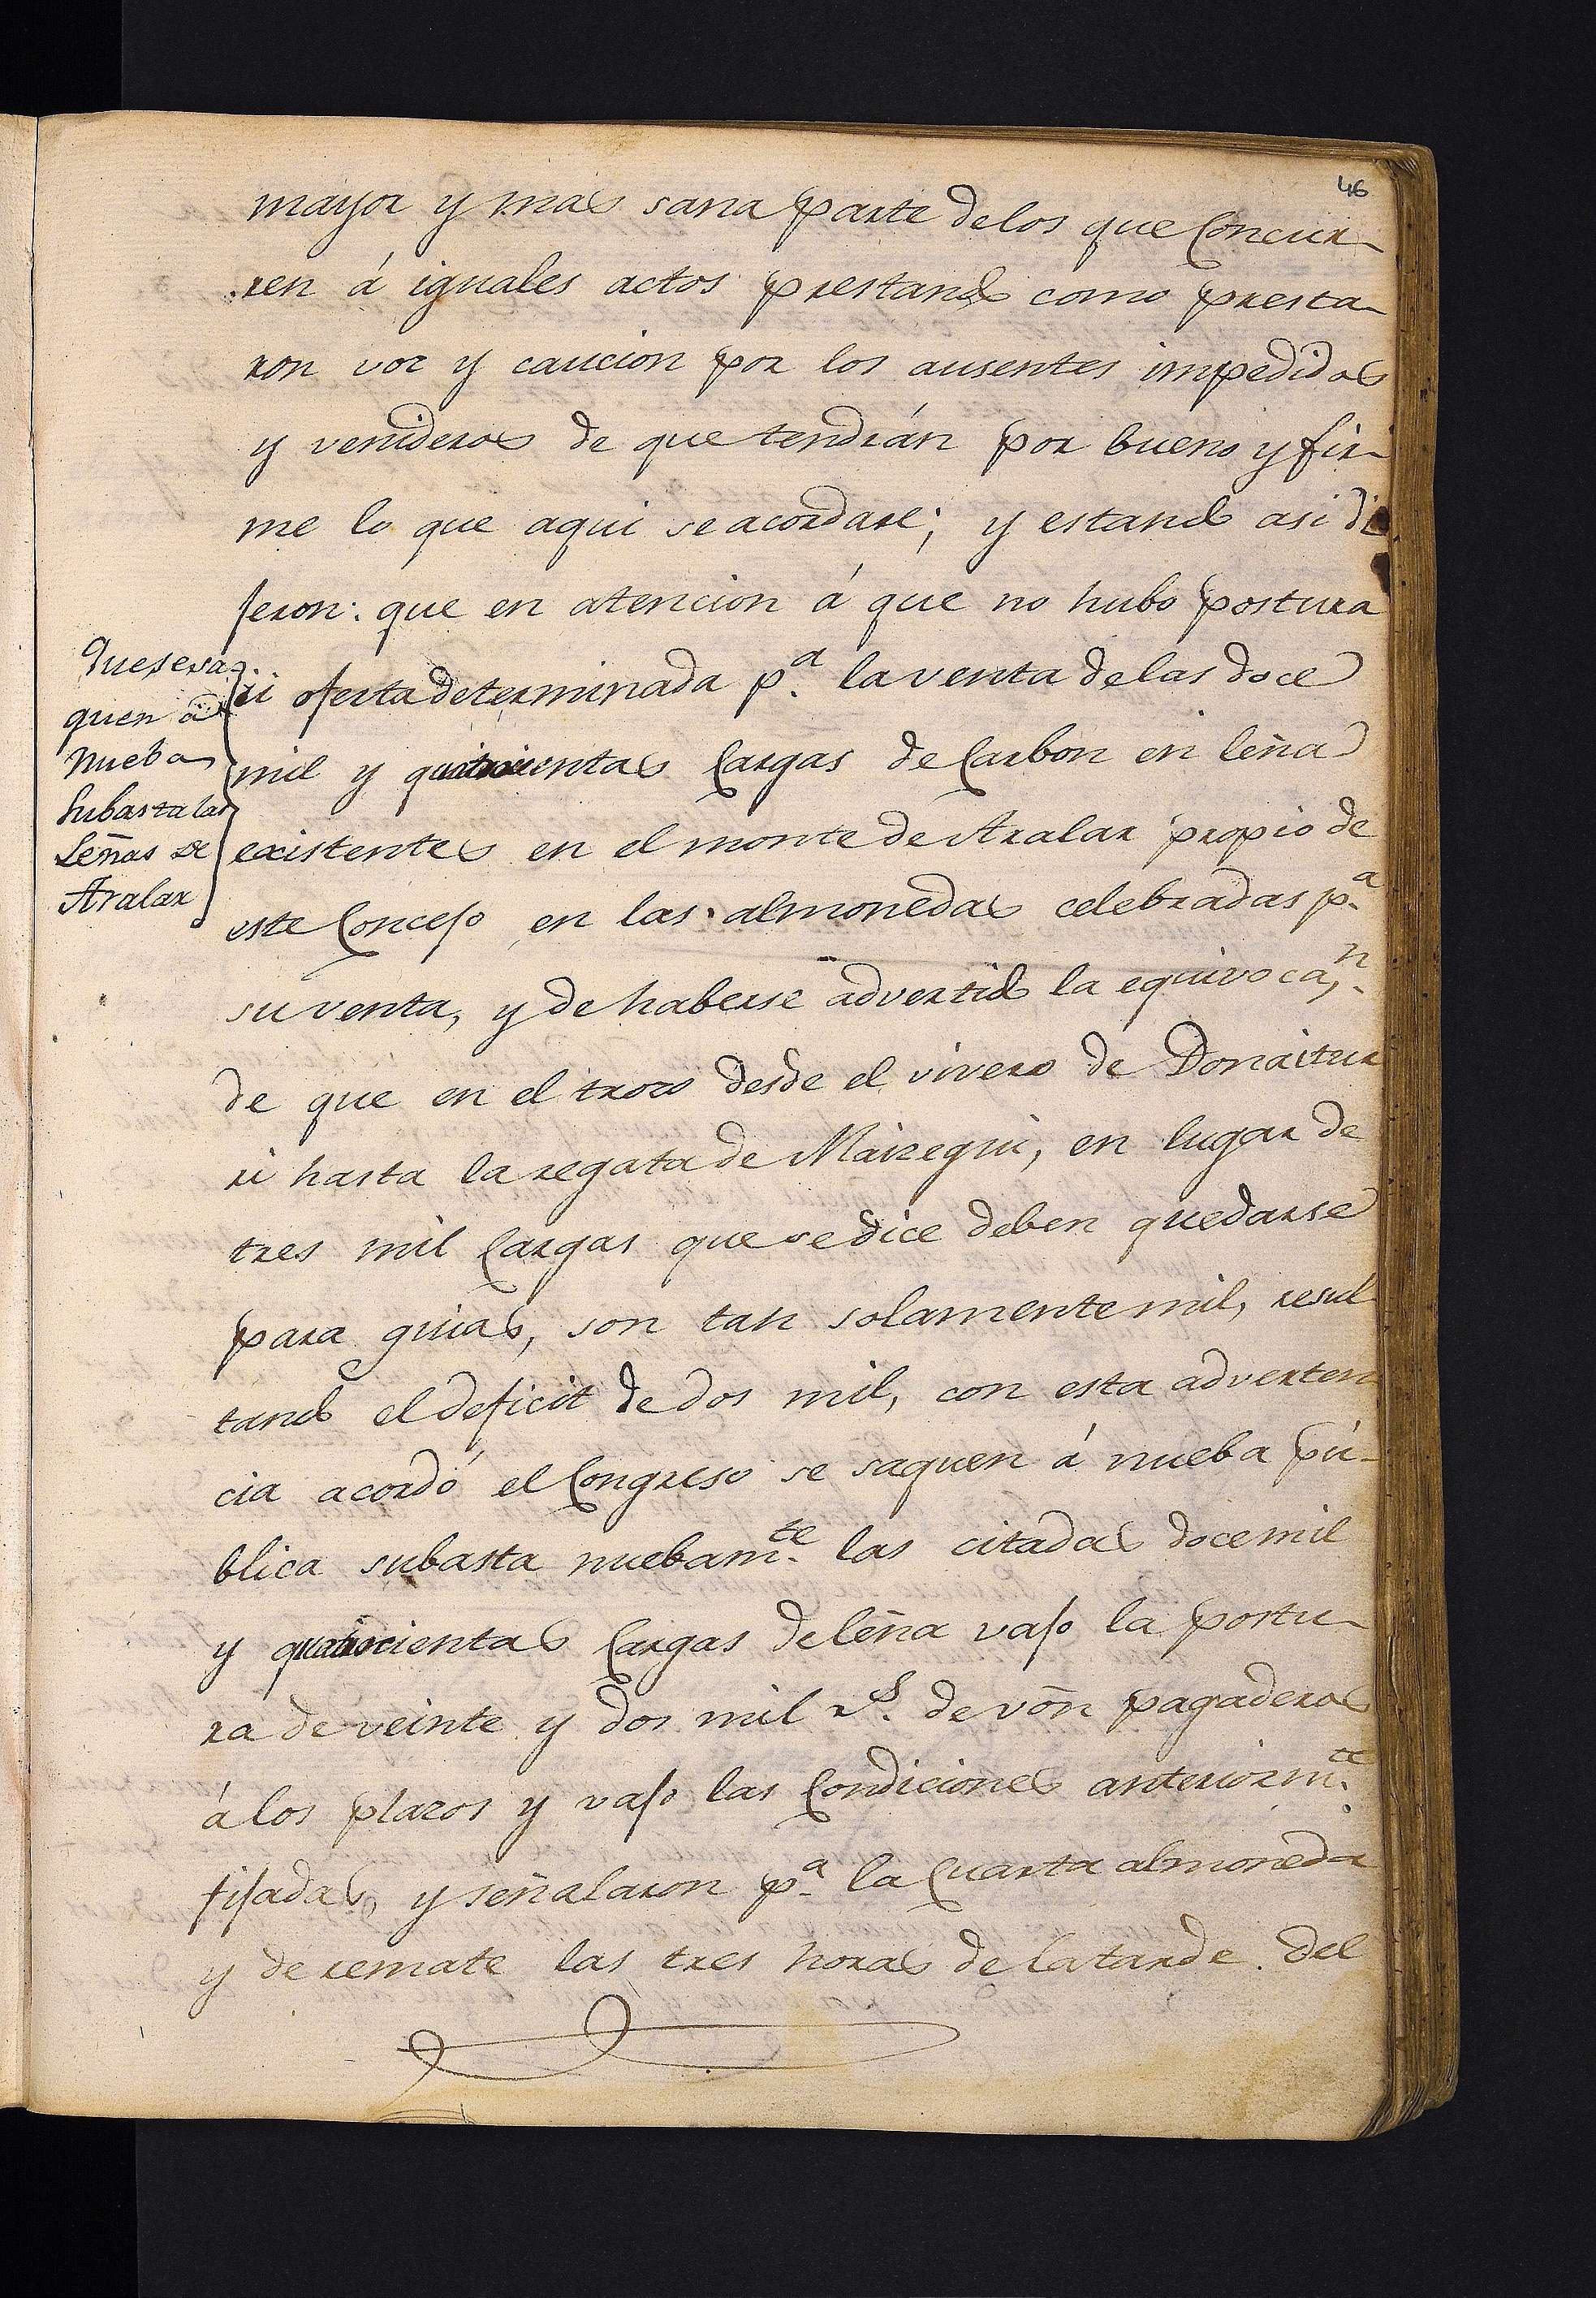 46
mayor y mas sana parte de los que Concur-
ren á iguales actos prestando como presta-
ron voz y caucion por los ausentes impedidos
y venideros de que tendrán por bueno y fir-
me lo que aqui se acordare; y estando asi di
jeron: que en atencion á que no hubo postura
Que se sa
quen a
nueba
Subasta las
Leñas de
Aralar
ni oferta determinada p.ª la venta de las doce
mil y quatrocientas Cargas de Carbon en leña
existentes en el monte de Aralar propio de
este Concejo en las almonedas celebradas p.ª
su venta, y de haberse advertido la equivocac.n
de que en el trozo desde el vivero de Donaitur
ri hasta la regata de Maizegui, en lugar de
tres mil Cargas que se dice deben quedarse
para guias, son tan solamente mil, resul
tando el deficit de dos mil, con esta adverten
cia acordó el Congreso se saquen á nueba pú-
blica subasta nuebam.te las citadas doce mil
y quatrocientas Cargas de leña vajo la postu-
ra de veinte y dos mil r.s de vōn pagaderos
á los plazos y vajo las Condiciones anteriorm.te
fijadas, y señalaron p.ª la Cuarta almoneda
y de remate las tres horas de la tarde del